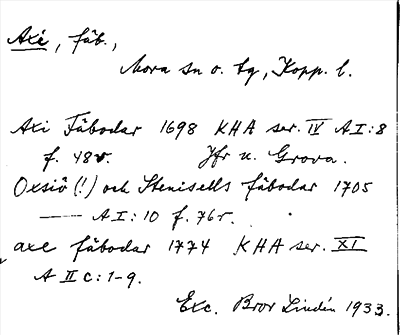 Axi, fäb.,
Mora sn o. tg, Kopp. l.
Axi Fäbodar 1698 KHA ser. IV A I:8
f. 48v. Jfr u. Grova.
Oxsiö (!) och Stenisells fäbodar 1705
—— A I:10 f. 76r.
axe fäbodar 1774 KHA ser. XI
A II c:1-9.
Exc. Bror Lindén 1933.